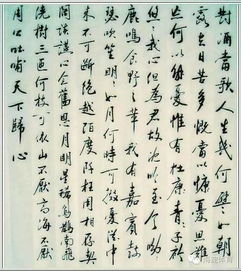 對酒當歌人生幾何譬如朝
露去日苦多慨當以慷憂思難
忘何以解憂惟有杜康青青子衿
悠悠我心但為君故沈吟至今呦呦
鹿鳴食野之苹我有嘉賓鼓
瑟吹笙明明如月何時可掇憂從中
來不可斷絕越陌度阡枉用相存契
闊談讌心念舊恩月明星稀烏鵲南飛
繞樹三匝何枝可依山不厭高海不厭深
周公吐哺天下歸心